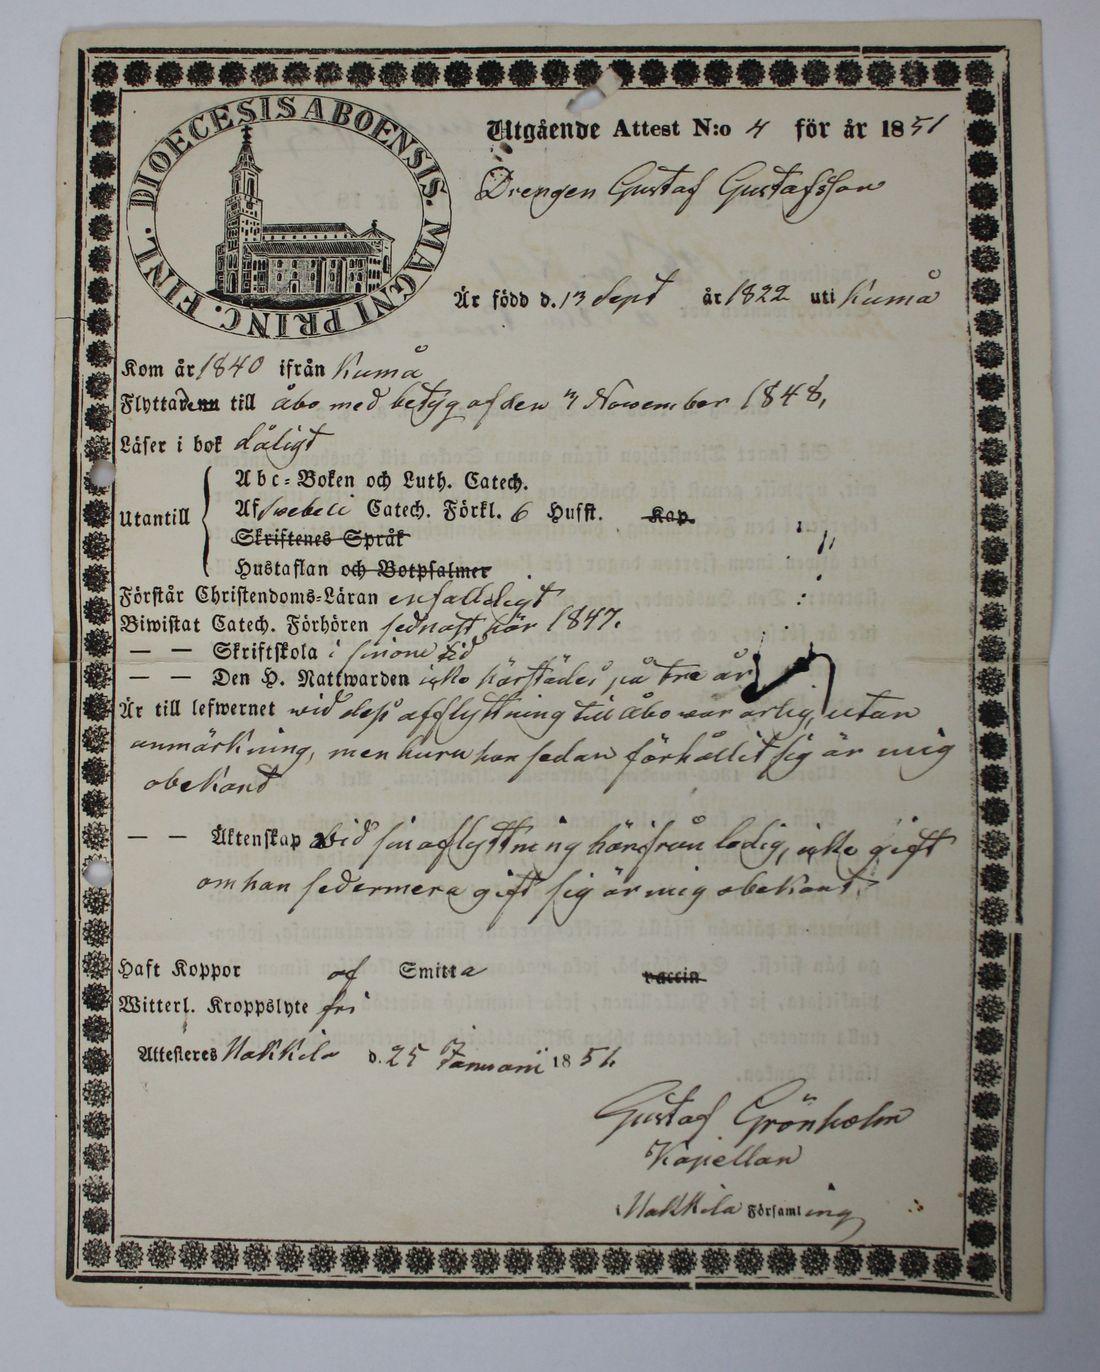 DIOECESIS ABOENSIS. MAGNI PRINC. FINL.
Utgående Attest N:o 4 för år 1851
Drengen Gustaf Gustafsson
Är född d. 13 Sept år 1822 uti Kumå
Kom år 1840 ifrån Kumå
Flyttade till Åbo med betyg af den 7 November 1848,
Läser i bok dåligt
Utantill
Abc-Boken och Luth. Catech.
Af Svebeli Catech. Förkl. 6 Hufst. Kap.
Skriftenes Språk
Hustaflan och Botpsalmer
Förstår Christendoms-Läran enfalldigt
Biwistat Catech. Förhören sednast här 1847.
— — Skriftskola i sinom tid
— — Den H. Nattwarden icke härstädes på tre år
Är till lefwernet wid dess afflyttning till Åbo war ärlig, utan
anmärkning, men huru han sedan förhållit sig är mig
obekant
— — Äktenskap wid sin aflyttning härifrån ledig, icke gift
om han sedermera gift sig är mig obekant.
Haft Koppor af Smitta vaccin
Witterl. Kroppslyte fri
Attesteres Nakkila d. 25 Januarii 1851.
Gustaf Grönholm
Kapellan
i Nakkila Församling